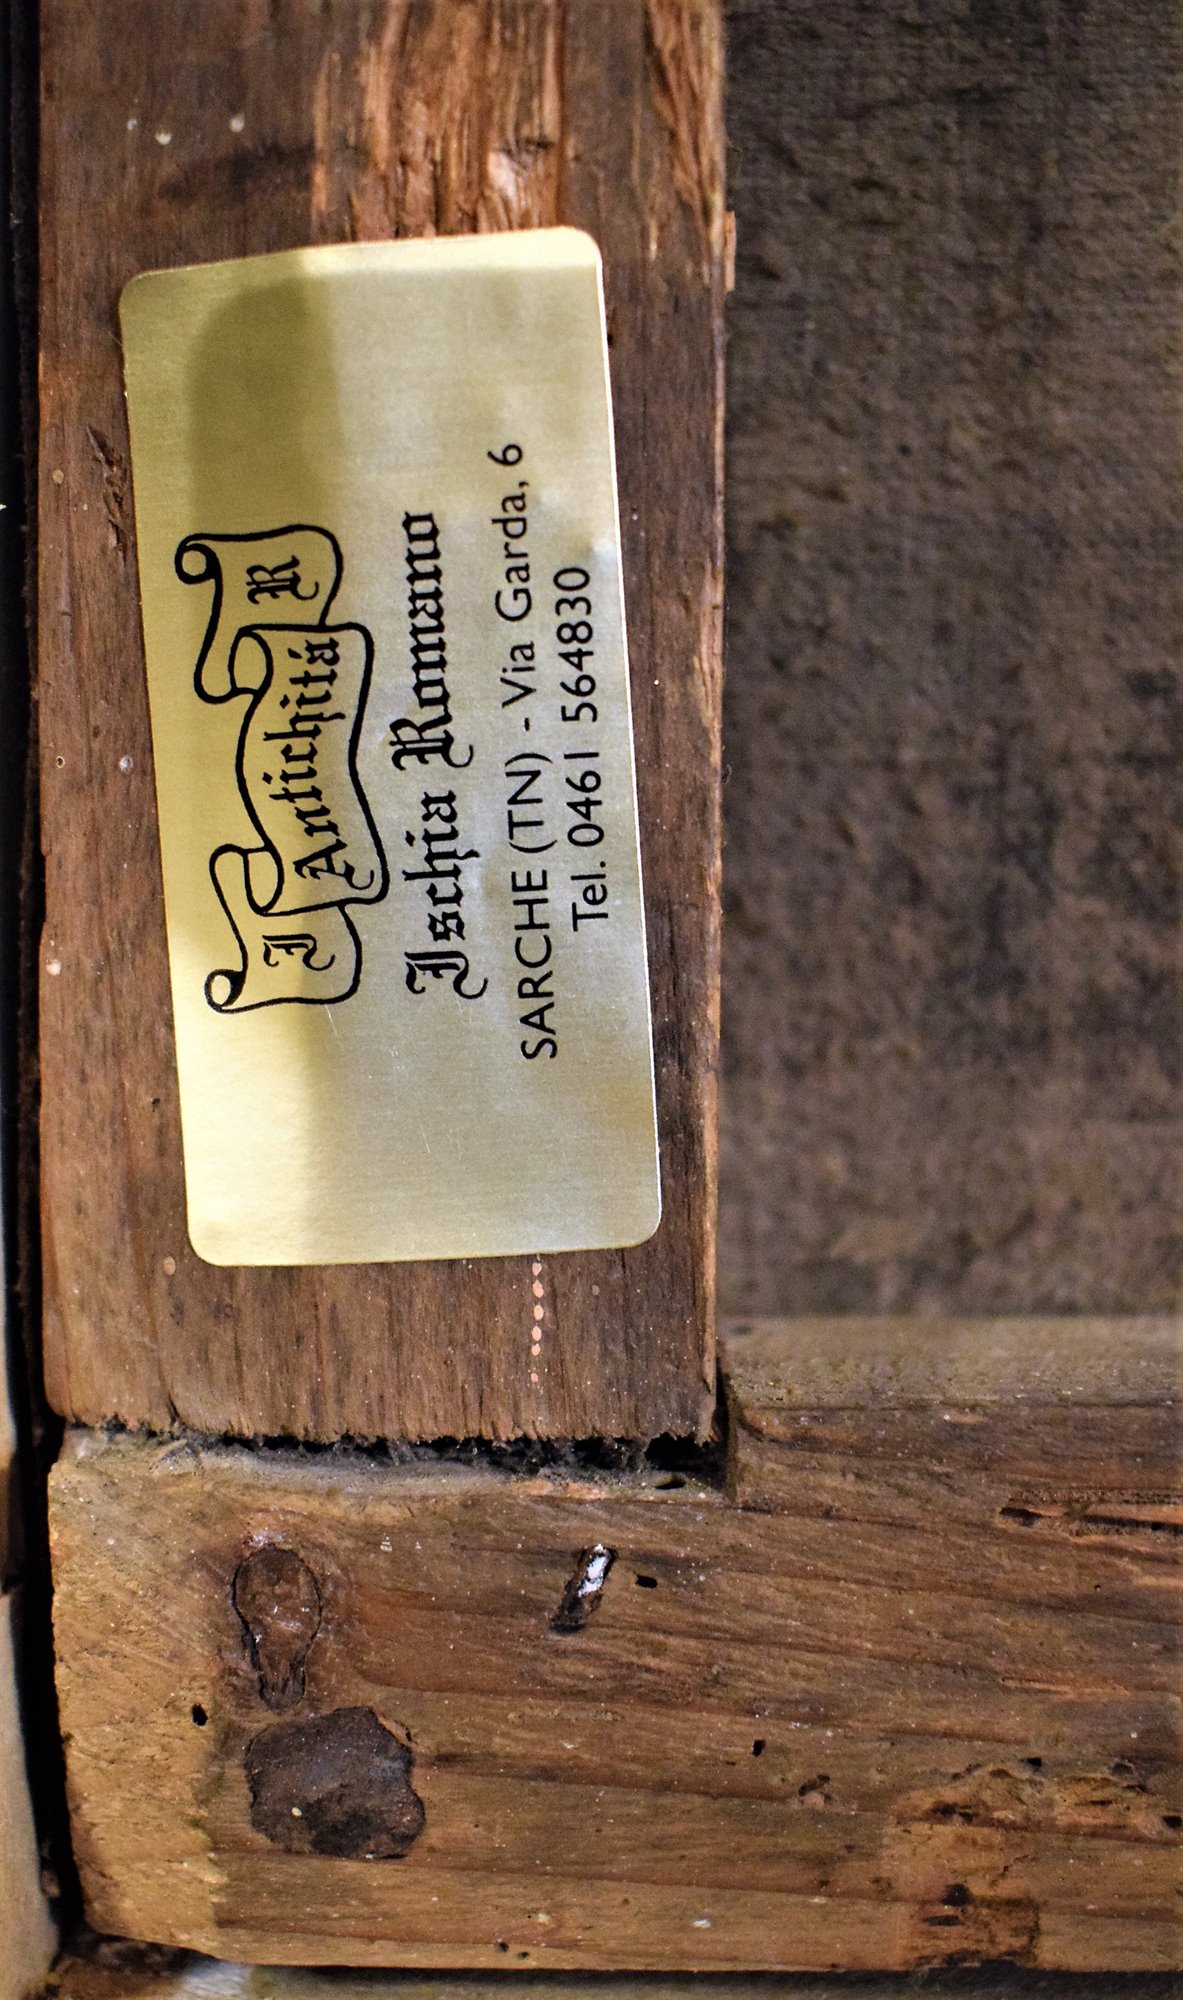 I Antichitá R
Ischia Romano
SARCHE (TN) - Via Garda, 6
Tel. 0461 564830